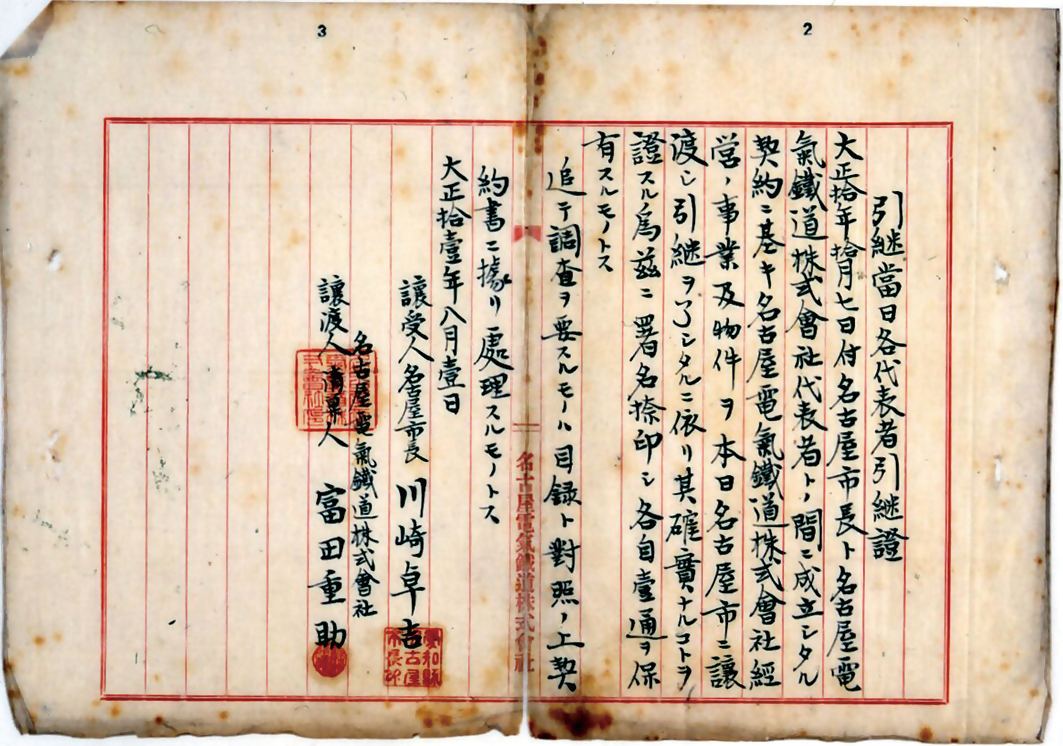 2
引繼當日各代表者引繼證
大正拾年拾月七日付名古屋市長ト名古屋電
氣鐵道株式會社代表者トノ間ニ成立シタル
契約ニ基キ名古屋電氣鐵道株式會社經
營ノ事業及物件ヲ本日名古屋市ニ讓
渡シ引繼ヲ了シタルニ依リ其確實ナルコトヲ
證スル爲茲ニ署名捺印シ各自壹通ヲ保
有スルモノトス
追テ調査ヲ要スルモノハ目録ト對照ノ上契
名古屋電氣鐵道株式會社
3
約書ニ據リ處理スルモノトス
大正拾壹年八月壹日
讓受人名古屋市長 川崎卓吉
愛知縣名古屋市長印
名古屋電氣鐵道株式會社
讓渡人 清算人 富田重助